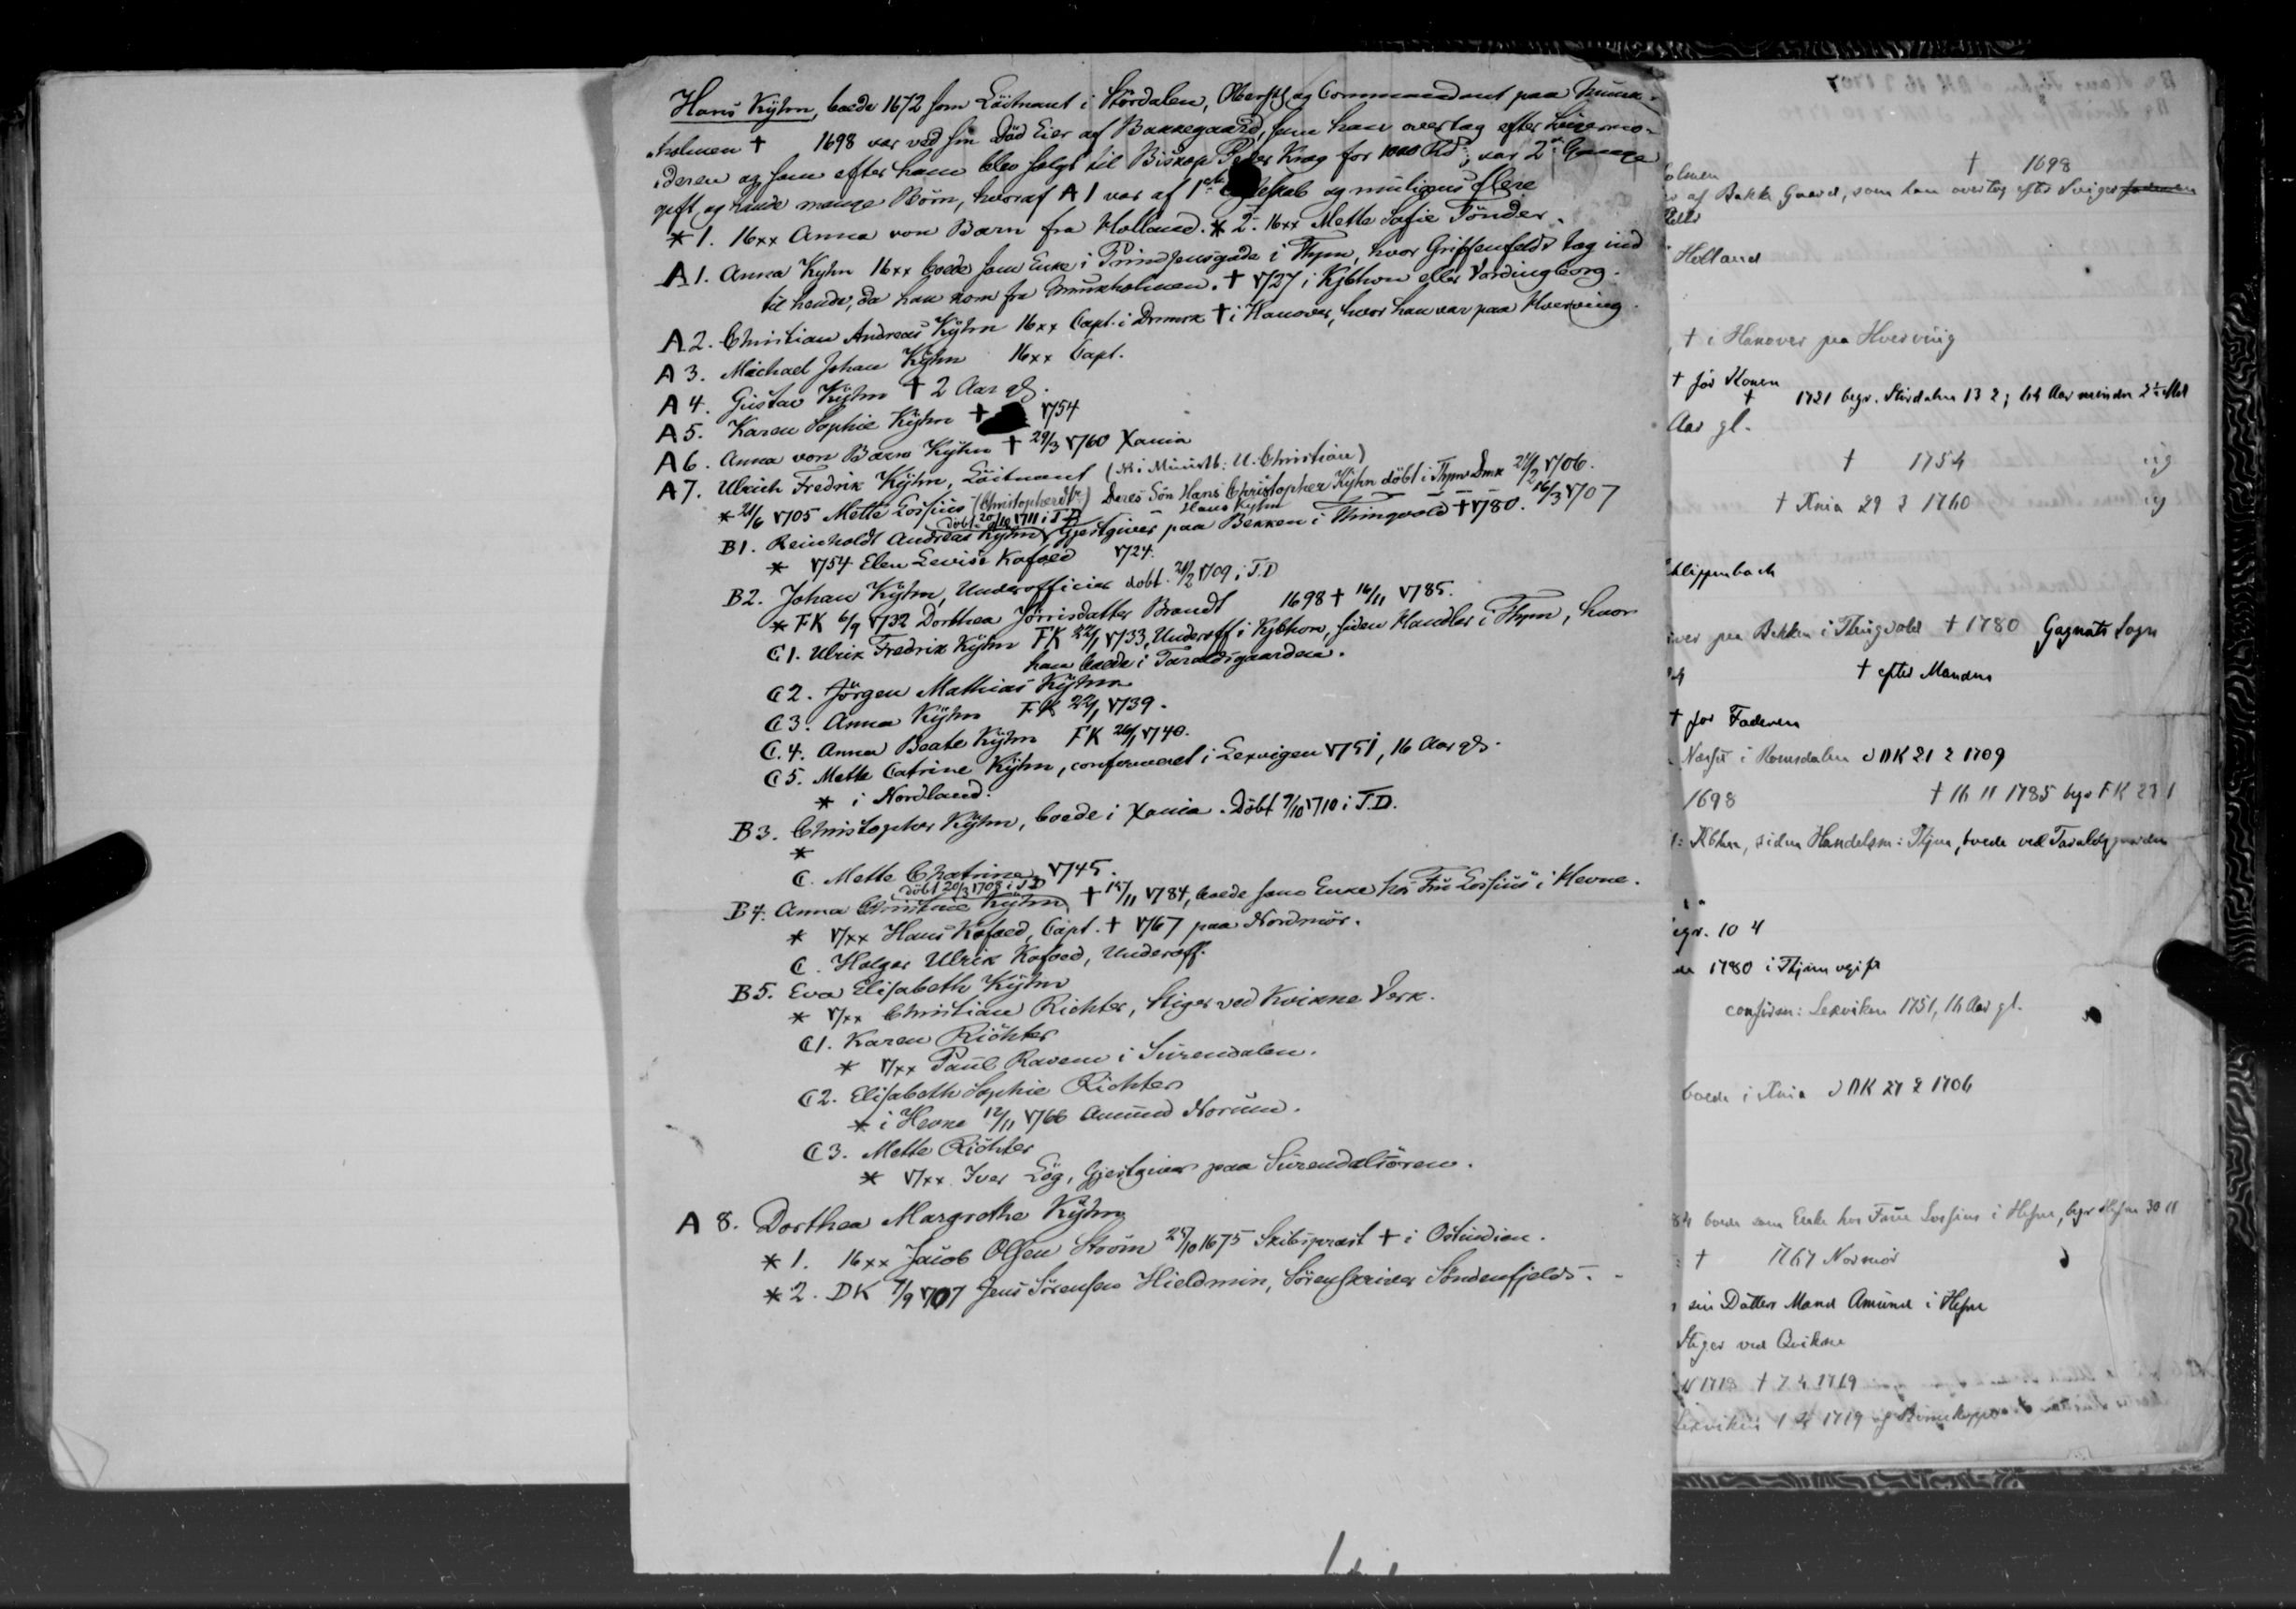 Hans Kÿhn, boede 1672 som Löitnant i Stördalen, Oberstl og Commandant paa Munk-
holmen † 1698 var ved sin Död Eier af Bakkegaard, som han overtog efter Svigermo-
deren og som efter ham blev solgt til Biskop Peder Krog for 1000 Rd; var 2 Gange
gift og havde mange Börn, hvoraf A 1 var af 1ste Egteskab og muligens flere
* 1. 16xx Anna von Barn fra Holland. * 2. 16xx Mette Sofie Tönder.
A 1. Anna Kÿhn 16xx boede som Enke i Prindsensgade i Thjm, hvor Griffenfeldt tog ind
til hende, da han kom fra Munkholmen. † 1727 i Kjbhvn eller Vordingborg.
A 2. Christian Andreas Kÿhn 16xx Capt. i Dnmrk † i Hanover, hvor han var paa Hverving.
A 3. Michael Johan Kÿhn 16xx Capt.
A 4. Gustav Kÿhn † 2 Aar gl.
A 5. Karen Sophie Kÿhn † 1754
A 6. Anna von Barn Kÿhn † 29/3 1760 Xania
A 7. Ulrich Fredrik Kÿhn, Löitnant (N i Ministb: U. Christian)
* 21/6 1705 Mette Lossius (Christopherdtr) Deres Sön Hans Christopher Kÿhn döbt i Thjms Dmk 27/2 1706.
döbt 20/10 1711 i T.D Hans Kyhn 16/3 1707
B1. Reinholdt Andreas Kÿhn, Gjestgiver paa Bekken i Thingvold † 1780.
* 1754 Elen Levise Kofoed 1724.
B2. Johan Kÿhn, Underofficier döbt. 21/2 1709 i T.D
* FK 6/9 1732 Dorthea Jörrisdatter Brandt 1698 † 16/11 1785.
C 1. Ulrik Fredrik Kÿhn FK 22/1 1733, Underoff i Kjbhvn, siden Handler i Thjm, hvor
han boede i Taraldsgaarden.
C 2. Jörgen Mathias Kÿhn
C 3. Anna Kÿhn FK 22/1 1739.
C. 4. Anna Beate Kÿhn FK 26/1 1740.
C 5. Mette Catrine Kÿhn, confirmeret i Lexvigen 1751, 16 Aar gl.
* i Nordland.
B 3. Christopher Kÿhn, boede i Xania. Döbt 9/10 1710 i T.D.
*
C. Mette Chatrine 1745.
döbt 20/3 1708 i T.D
B 4. Anna Christine Kÿhn † 15/11 1784, boede som Enke hos Fru Lossius i Hevne.
* 17xx Hans Kofoed, Capt. † 1767 paa Nordmör.
C. Holger Ulrik Kofoed, Underoff.
B 5. Eva Elisabeth Kÿhn
* 17xx Christian Richter, Stiger ved Kvikne Verk.
C 1. Karen Richter
* 17xx Paul Ravem i Surendalen.
C 2. Elisabeth Sophie Richter
* i Hevne 12/11 1766 Amund Norum.
C 3. Mette Richter
* 17xx Iver Lög, Gjestgiver paa Surendalsören.
A 8. Dorthea Margrethe Kÿhn
* 1. 16xx Jacob Olsen Ström 25/10 1675 Skibspræst † i Ostindien.
* 2. DK 7/9 1707 Jens Sörensen Hieldmin, Sörenskriver Söndenfjelds.
† 1698
olmen
af Bakke Gaard, som han overtog efter Sviger
Holland
† i Hanover paa Hverving
† för Konen
† 1721 begr. Stördalen 13 2; 64 Aar mindre 2½ Md
Aar gl.
† 1754
† Xnia 29 3 1760
klippenbach
iver paa Bekken i Thingvold † 1780 Gagnats Sogn
† efter Manden
† för Faderen
Næsset i Romsdalen DK 21 2 1709
1698 † 16 11 1785 begr FK 23 1
Kbhvn, siden Handelsm: Thjem, boede ved Taraldsgaarden
egr. 10 4
1780 i Thjem ugift
confirm: Lexviken 1751, 16 Aar gl.
boede i Xnia DK 27 2 1706
84 boede som Enke hos Frue Lossius i Hefne, begr Hefne 30 11
† 1767 Normör
sin Datters Mand Amund i Hefne
Stiger ved Qvikne
1718 † 7 4 1719
Lexviken 1 4 1719 af Börnekopper